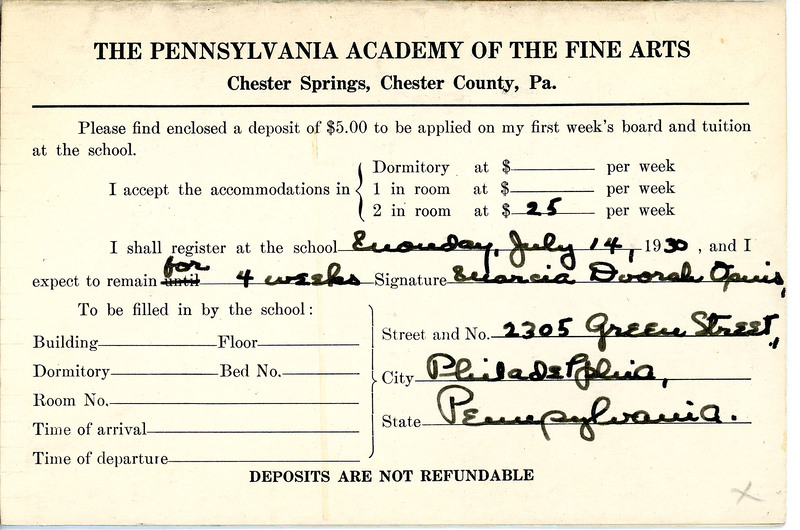 THE PENNSYLVANIA ACADEMY OF THE FINE ARTS
Chester Springs, Chester County, Pa.
Please find enclosed a deposit of $5.00 to be applied on my first week's board and tuition
at the school.
I accept the accommodations in
Dormitory at $ per week
1 in room at $ per week
2 in room at $ 25 per week
I shall register at the school Monday, July 14, 1930, and I
expect to remain until for 4 weeks Signature Marcia Dvorah
To be filled in by the school:
Building Floor
Dormitory Bed No.
Room No.
Time of arrival
Time of departure
Street and No. 2305 Green Street,
City Philadelphia,
State Pennsylvania.
DEPOSITS ARE NOT REFUNDABLE